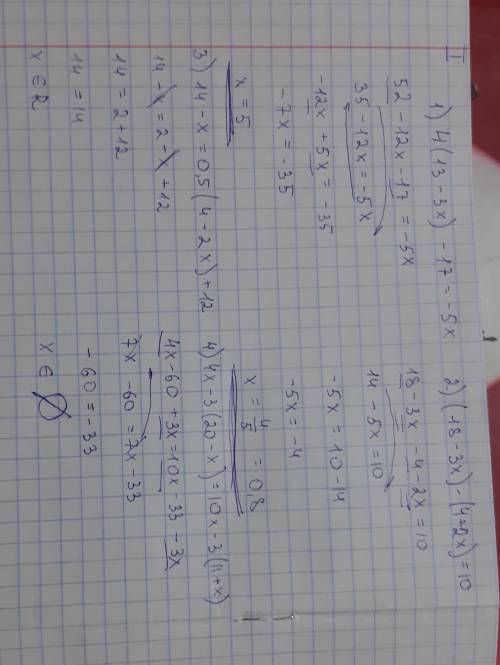 I
1) 4(13-3x)-17=-5x
52-12x-17=-5x
35-12x=-5x
-12x+5x=-35
-7x=-35
x=5
2) (18-3x)-(4+2x)=10
18-3x-4-2x=10
14-5x=10
-5x=10-14
-5x=-4
x=4/5=0,8
3) 14-x=0,5(4-2x)+12
14-x=2-x+12
14=2+12
14=14
x∈R
4) 4x-3(20-x)=10x-3(11+x)
4x-60+3x=10x-33-3x
7x-60=7x-33
-60=-33
x∈∅